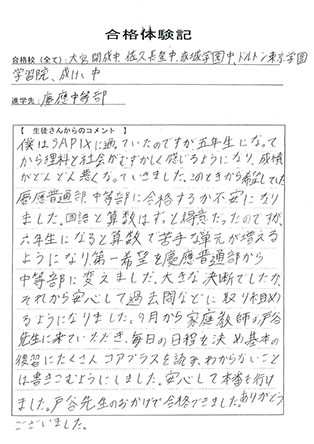 合格体験記
合格校(全て):大宮開成中、佐久長聖中、成城学園中、ドルトン東京学園
学習院、成けい中
進学先: 慶應中等部
【 生徒さんからのコメント 】
僕はSAPIXに通っていたのですが五年生になって
から理科と社会がむずかしく感じるようになり、成績
がどんどん悪くなっていきました。このときから希望していた
慶應普通部、中等部に合格するか不安になり
ました。国語と算数はずっと得意だったのですが
六年生になると算数で苦手な単元が増える
ようになり第一希望を慶應普通部から
中等部に変えました。大きな決断でしたが、
それから安心して過去問などに取り組める
ようになりました。9月から家庭教師の戸谷
先生に来ていただき、毎日の日程を決め基本の
復習にたくさんコアプラスを読み、わからないこと
は書きこむようにしました。安心して本番を行け
ました。戸谷先生のおかげで合格できました。ありがとう
ございました。